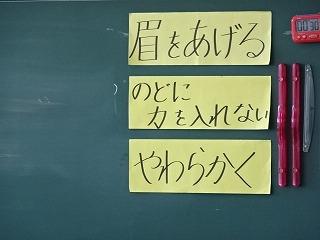 眉をあげる
のどに
力を入れない
やわらかく